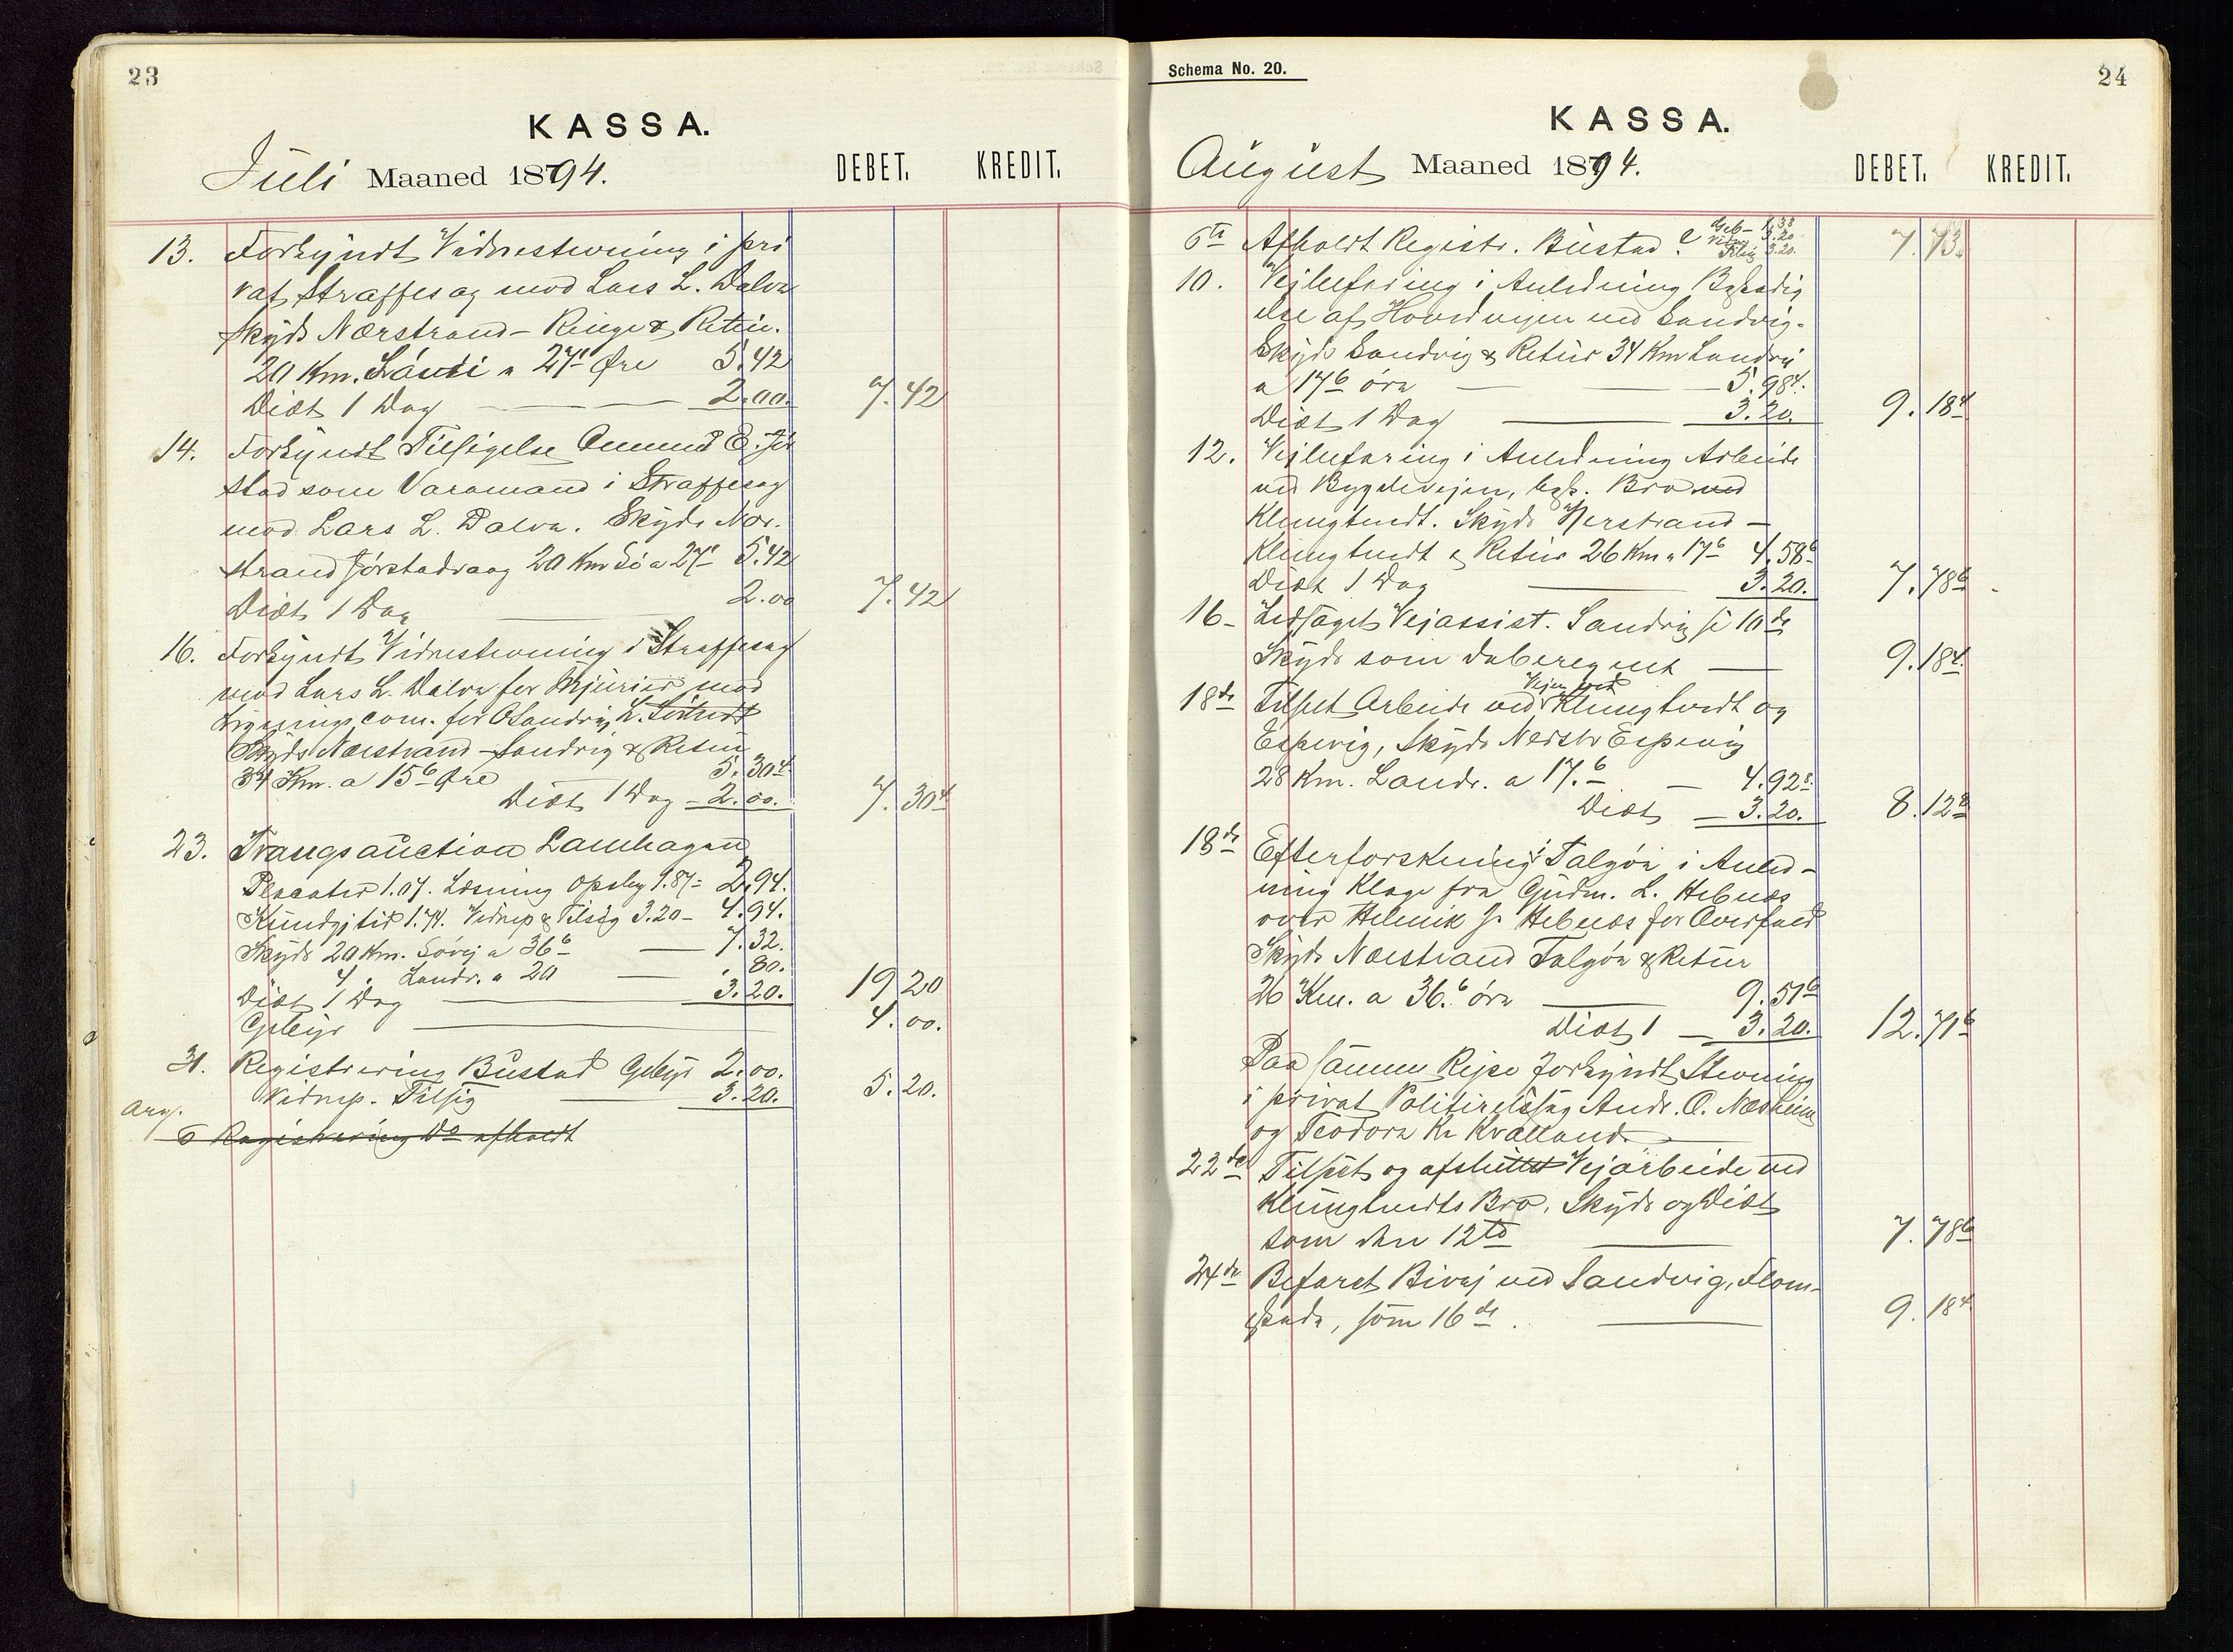 23
KASSA.
Juli Maaned 1894.
DEBET. KREDIT.
13. Forkyndt Vidnestevning i pri
vat Straffesag mod Lars L. Dalva
Skyds Nærstrand – Ringe & Retur.
20 Km. a 27¹ Øre 5.42
Diæt 1 Dag — 2.00. 7.42
14. Forkyndt Tilsigelse Omund E. Jør
stad som Varamand i Straffesag
mod Lars L. Dalva. Skyds Nær.
strand Jørstadvaag 20 Km Sø a 27¹ 5.42
Diæt 1 Dag — 2.00 7.42
16. Forkyndt Vidnestevning i Straffesag
mod Lars L. Dalva for Injurier mod
Ligningscom. for O Sandvig
Skyds Nærstrand – Sandvig & Retur
34 Km. a 15⁶ Øre 5.30⁴
Diæt 1 Dag – 2.00. 7.30⁴
23. Tvangsauction Lamhagen
Placater 1.07. Læsning Opslag 1.87 = 2.94.
Kundgj 1.74. Vidnep & Tilsig 3.20 – 4.94.
Skyds 20 Km. Søvej a 36⁶ — 7.32.
" 4 " Landv. a 20 — 80.
Diæt 1 Dag — 3.20. 19 20
Gebyr — 4.00.
31. Registrering Bustad Gebyr 2.00.
Vidnep. Tilsig — 3.20. 5.20.
Aug.
6 Registrering Do afholdt
Schema No. 20.
24
KASSA.
August Maaned 1894.
DEBET. KREDIT.
6te Afholdt Registr. Bustad Geb – 1.33
3.20
3.20. 7.73.
10. Vejbefaring i Anledning Beskadig
else af Hovedvejen ved Sandvig.
Skyds Sandvig & Retur 34 Km Landvej
a 17⁶ øre — 5.98⁴.
Diæt 1 Dag — 3.20. 9.18⁴
12. Vejbefaring i Anledning Arbeide
ved Bygdevejen, Bro ved
Klungtvedt. Skyds Nerstrand –
Klungtvedt & Retur 26 Km a 17⁶ 4.58⁶
Diæt 1 Dag — 3.20. 7.78⁶
16 – Ledsaget Vejassist. Sandvig se 10de
Skyds som da beregnet — 9.18⁴
18de Tilset Arbeide ved Vejen ved Klungtvedt og
Espevig, Skyds Nerstr Espevig
28 Km. Landv. a 17.⁶ – 4.92⁸
Diæt — 3.20. 8.12⁸
18de Efterforskning i Talgøn i Anled-
ning Klage fra Gudm. L. Hebnæs
over Henrik J. Hebnæs for Overfald
Skyds Nærstrand Talgøn & Retur
26 Km. a 36.⁶ øre — 9.51⁶
Diæt 1 — 3.20. 12.71⁶
Paa samme Rejse forkyndt Stevning
i privat Politiretssag Andr. O. Næsheim
og Teodora Kr Kvalland. —
22de Tilset og afsluttet Vejarbeide ved
Klungtvedts Bro. Skyds og Diæt
som den 12te — 7.78⁶
24de Befaret Bivej ved Sandvig, Flom-
skade, som 16de. — 9.18⁴